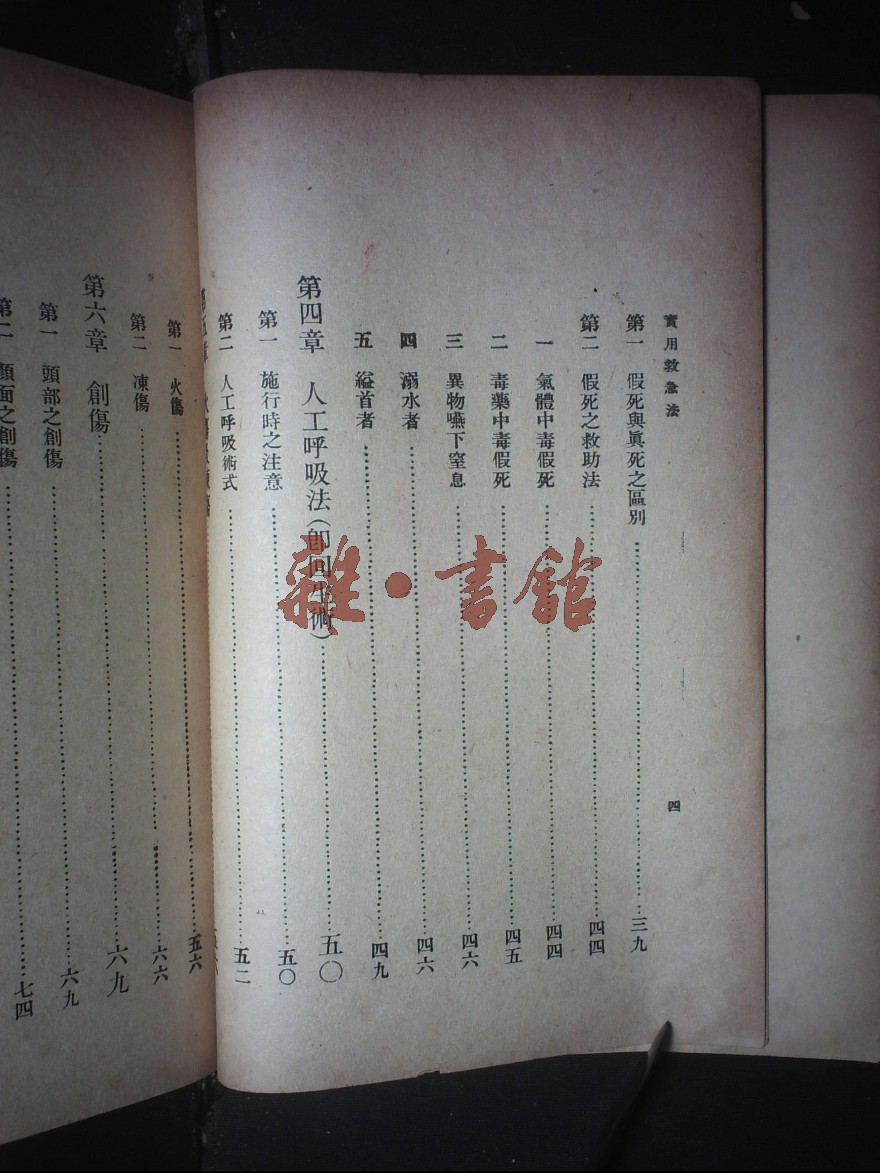 實用救急法
四
第一 假死與眞死之區別……三九
第二 假死之救助法……四四
一 氣體中毒假死……四四
二 毒藥中毒假死……四五
三 異物嚥下窒息……四六
四 溺水者……四六
五 縊首者……四九
第四章 人工呼吸法（卽回生術）……五〇
第一 施行時之注意……五〇
第二 人工呼吸術式……五二
第一 火傷……五六
第二 凍傷……六六
第六章 創傷……六九
第一 頭部之創傷……六九
第二 顏面之創傷……七四
雜·書館